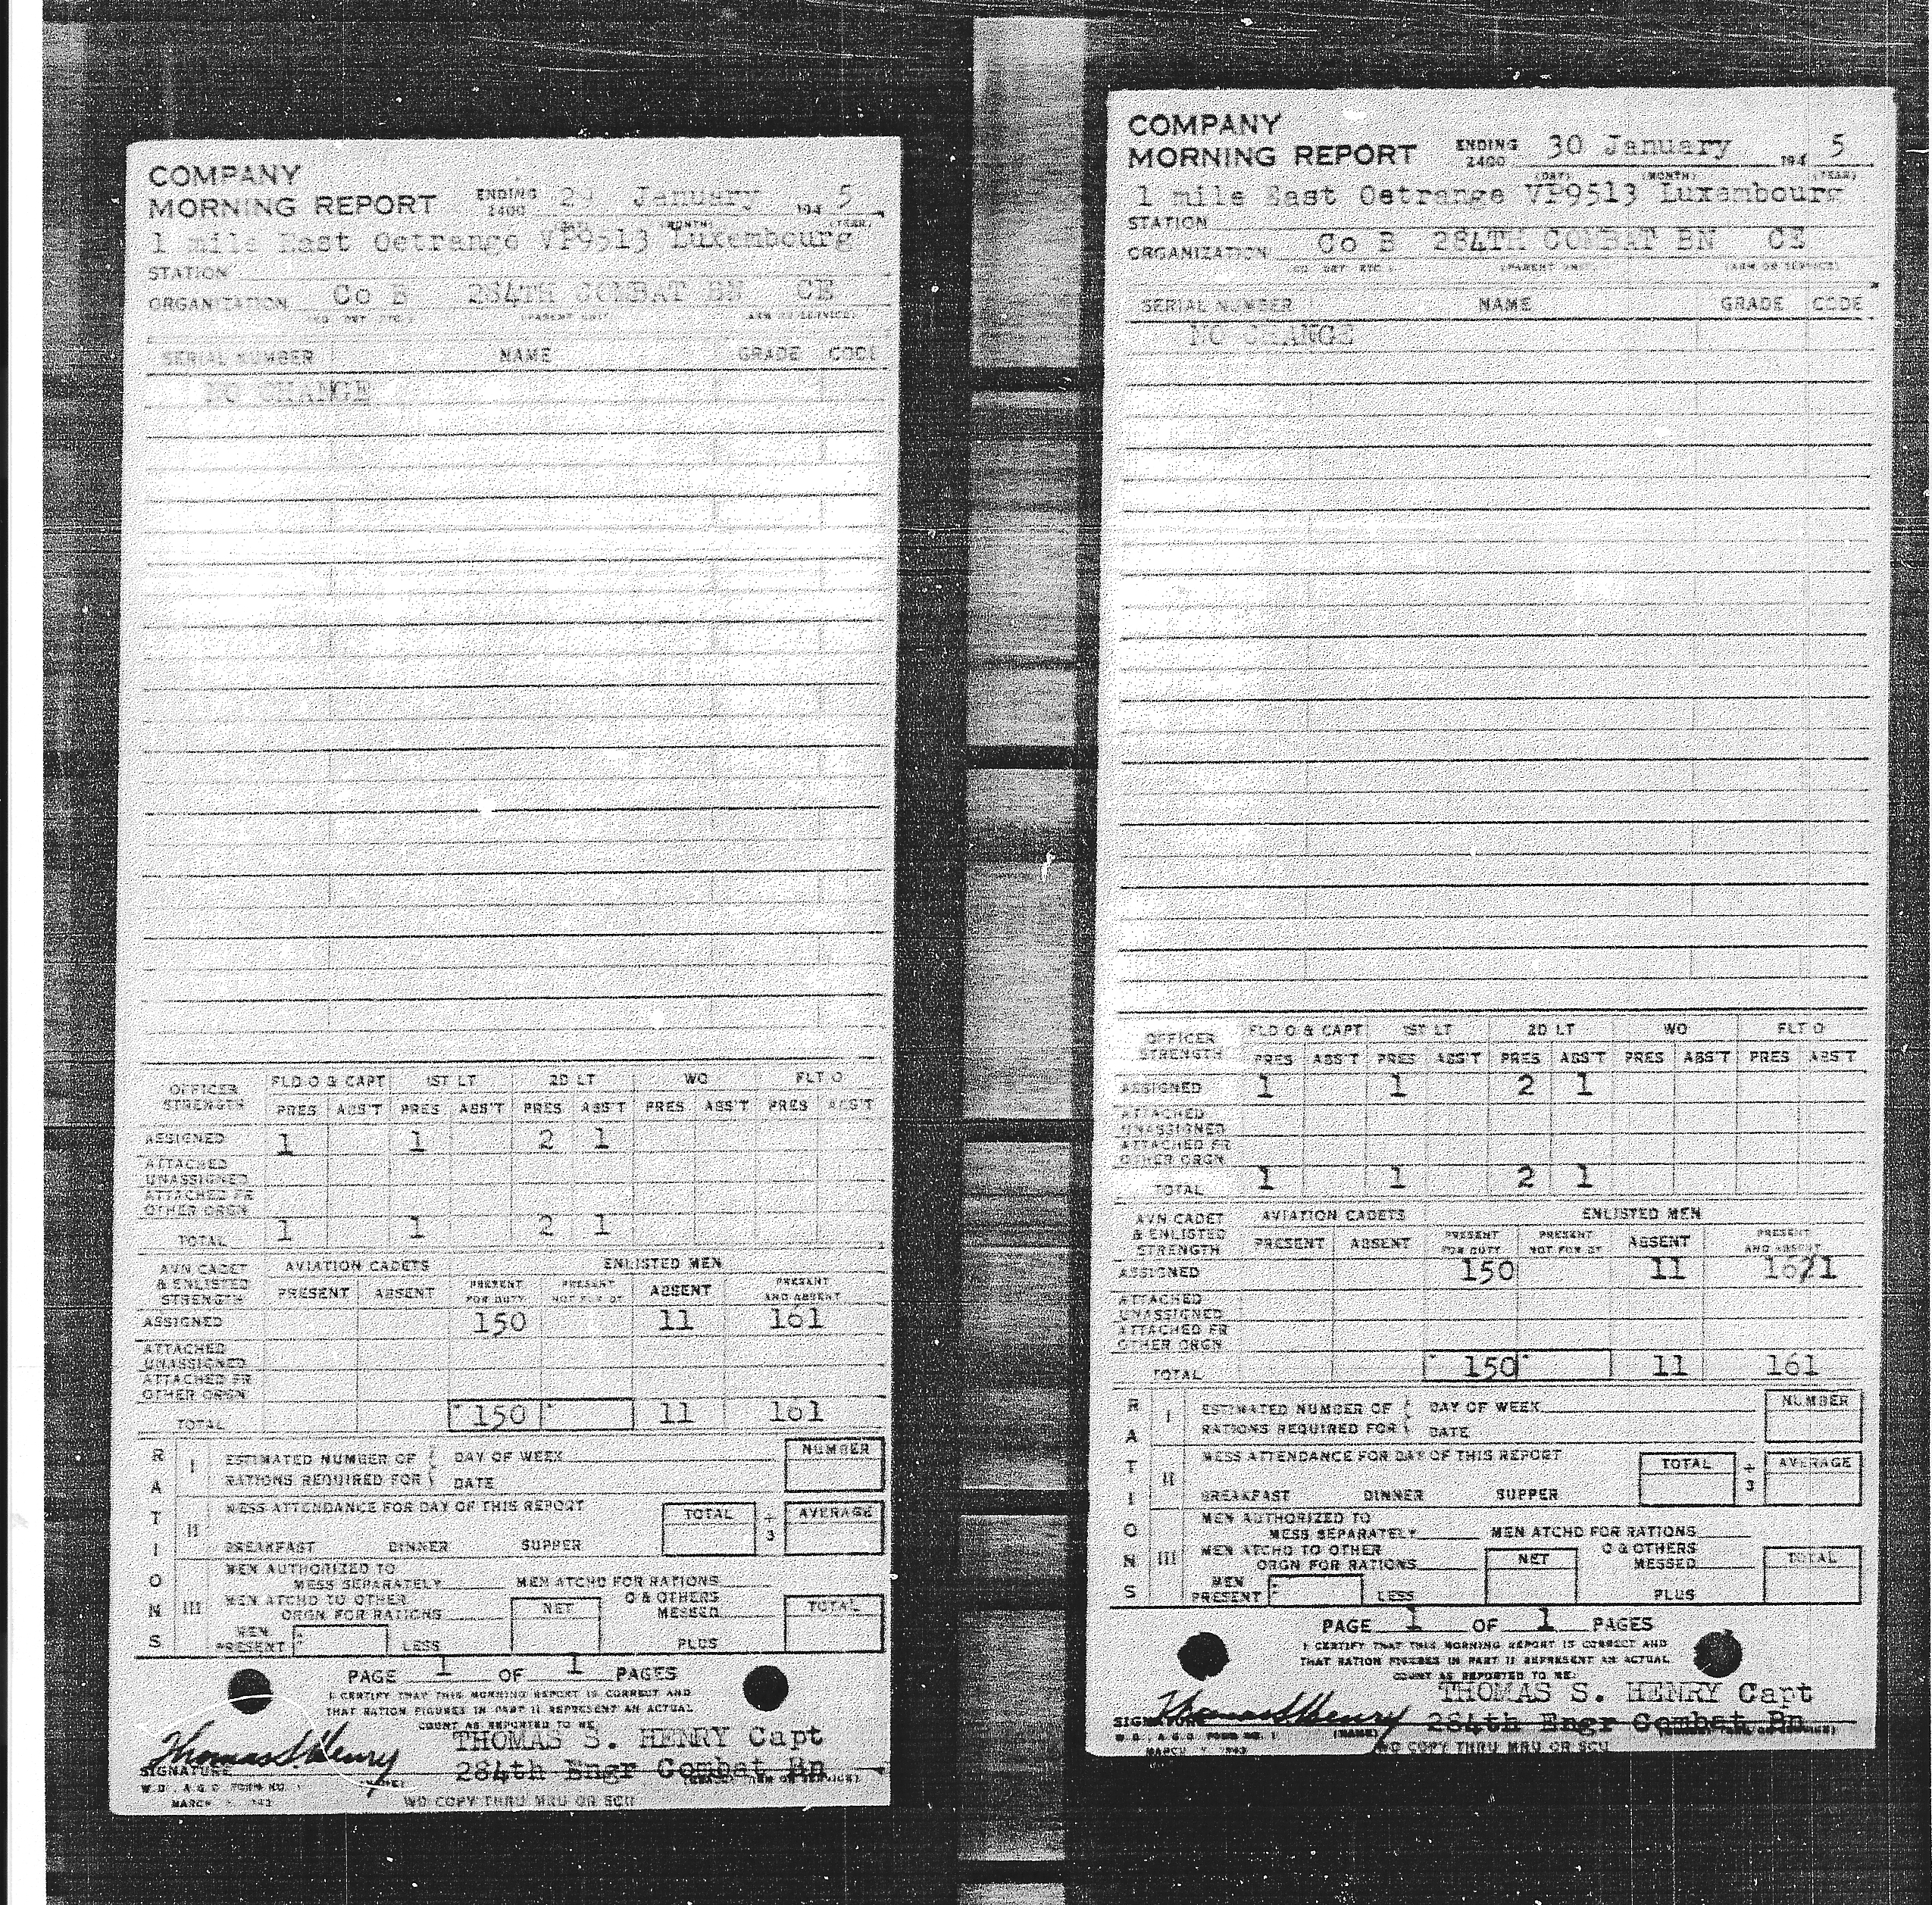 COMPANY
MORNING REPORT ENDING 2400 29 January 194 5
(DAY) (MONTH) (YEAR)
1 mile East Oetrange VP9513 Luxembourg
STATION
ORGANIZATION Co B 284TH COMBAT BN CE
(CO DET ETC) (PARENT UNIT) (ARM OR SERVICE)
SERIAL NUMBER NAME GRADE CODE
NO CHANGE
OFFICER STRENGTH FLD O & CAPT 1ST LT 2D LT WO FLT O
PRES ABS'T PRES ABS'T PRES ABS'T PRES ABS'T PRES ABS'T
ASSIGNED 1 1 2 1
ATTACHED
UNASSIGNED
ATTACHED FR
OTHER ORGN
TOTAL 1 1 2 1
AVN CADET & ENLISTED STRENGTH AVIATION CADETS ENLISTED MEN
PRESENT ABSENT PRESENT FOR DUTY PRESENT NOT FOR DY ABSENT PRESENT AND ABSENT
ASSIGNED 150 11 161
ATTACHED
UNASSIGNED
ATTACHED FR
OTHER ORGN
TOTAL 150 11 161
RATIONS
I ESTIMATED NUMBER OF DAY OF WEEK NUMBER
RATIONS REQUIRED FOR DATE
II MESS ATTENDANCE FOR DAY OF THIS REPORT TOTAL ÷ 3 AVERAGE
BREAKFAST DINNER SUPPER
III MEN AUTHORIZED TO
MESS SEPARATELY MEN ATCHD FOR RATIONS
MEN ATCHD TO OTHER O & OTHERS
ORGN FOR RATIONS NET MESSED TOTAL
MEN
PRESENT LESS PLUS
PAGE 1 OF 1 PAGES
I CERTIFY THAT THIS MORNING REPORT IS CORRECT AND
THAT RATION FIGURES IN PART II REPRESENT AN ACTUAL
COUNT AS REPORTED TO ME.
Thomas S. Henry THOMAS S. HENRY Capt
SIGNATURE 284th Engr Combat Bn
(NAME) (GRADE) (ARM OR SERVICE)
W.D., A.G.O. FORM NO. 1
MARCH 1943 WD COPY THRU MRU OR SCU
COMPANY
MORNING REPORT ENDING 2400 30 January 194 5
(DAY) (MONTH) (YEAR)
1 mile East Oetrange VP9513 Luxembourg
STATION
ORGANIZATION Co B 284TH COMBAT BN CE
(CO DET ETC) (PARENT UNIT) (ARM OR SERVICE)
SERIAL NUMBER NAME GRADE CODE
NO CHANGE
OFFICER STRENGTH FLD O & CAPT 1ST LT 2D LT WO FLT O
PRES ABS'T PRES ABS'T PRES ABS'T PRES ABS'T PRES ABS'T
ASSIGNED 1 1 2 1
ATTACHED
UNASSIGNED
ATTACHED FR
OTHER ORGN
TOTAL 1 1 2 1
AVN CADET & ENLISTED STRENGTH AVIATION CADETS ENLISTED MEN
PRESENT ABSENT PRESENT FOR DUTY PRESENT NOT FOR DY ABSENT PRESENT AND ABSENT
ASSIGNED 150 11 16/1
ATTACHED
UNASSIGNED
ATTACHED FR
OTHER ORGN
TOTAL 150 11 161
RATIONS
I ESTIMATED NUMBER OF DAY OF WEEK NUMBER
RATIONS REQUIRED FOR DATE
II MESS ATTENDANCE FOR DAY OF THIS REPORT TOTAL ÷ 3 AVERAGE
BREAKFAST DINNER SUPPER
III MEN AUTHORIZED TO
MESS SEPARATELY MEN ATCHD FOR RATIONS
MEN ATCHD TO OTHER O & OTHERS
ORGN FOR RATIONS NET MESSED TOTAL
MEN
PRESENT LESS PLUS
PAGE 1 OF 1 PAGES
I CERTIFY THAT THIS MORNING REPORT IS CORRECT AND
THAT RATION FIGURES IN PART II REPRESENT AN ACTUAL
COUNT AS REPORTED TO ME.
THOMAS S. HENRY Capt
SIGNATURE Thomas S. Henry 284th Engr Combat Bn
W.D., A.G.O. FORM NO. 1 (NAME)
MARCH 1943 WD COPY THRU MRU OR SCU